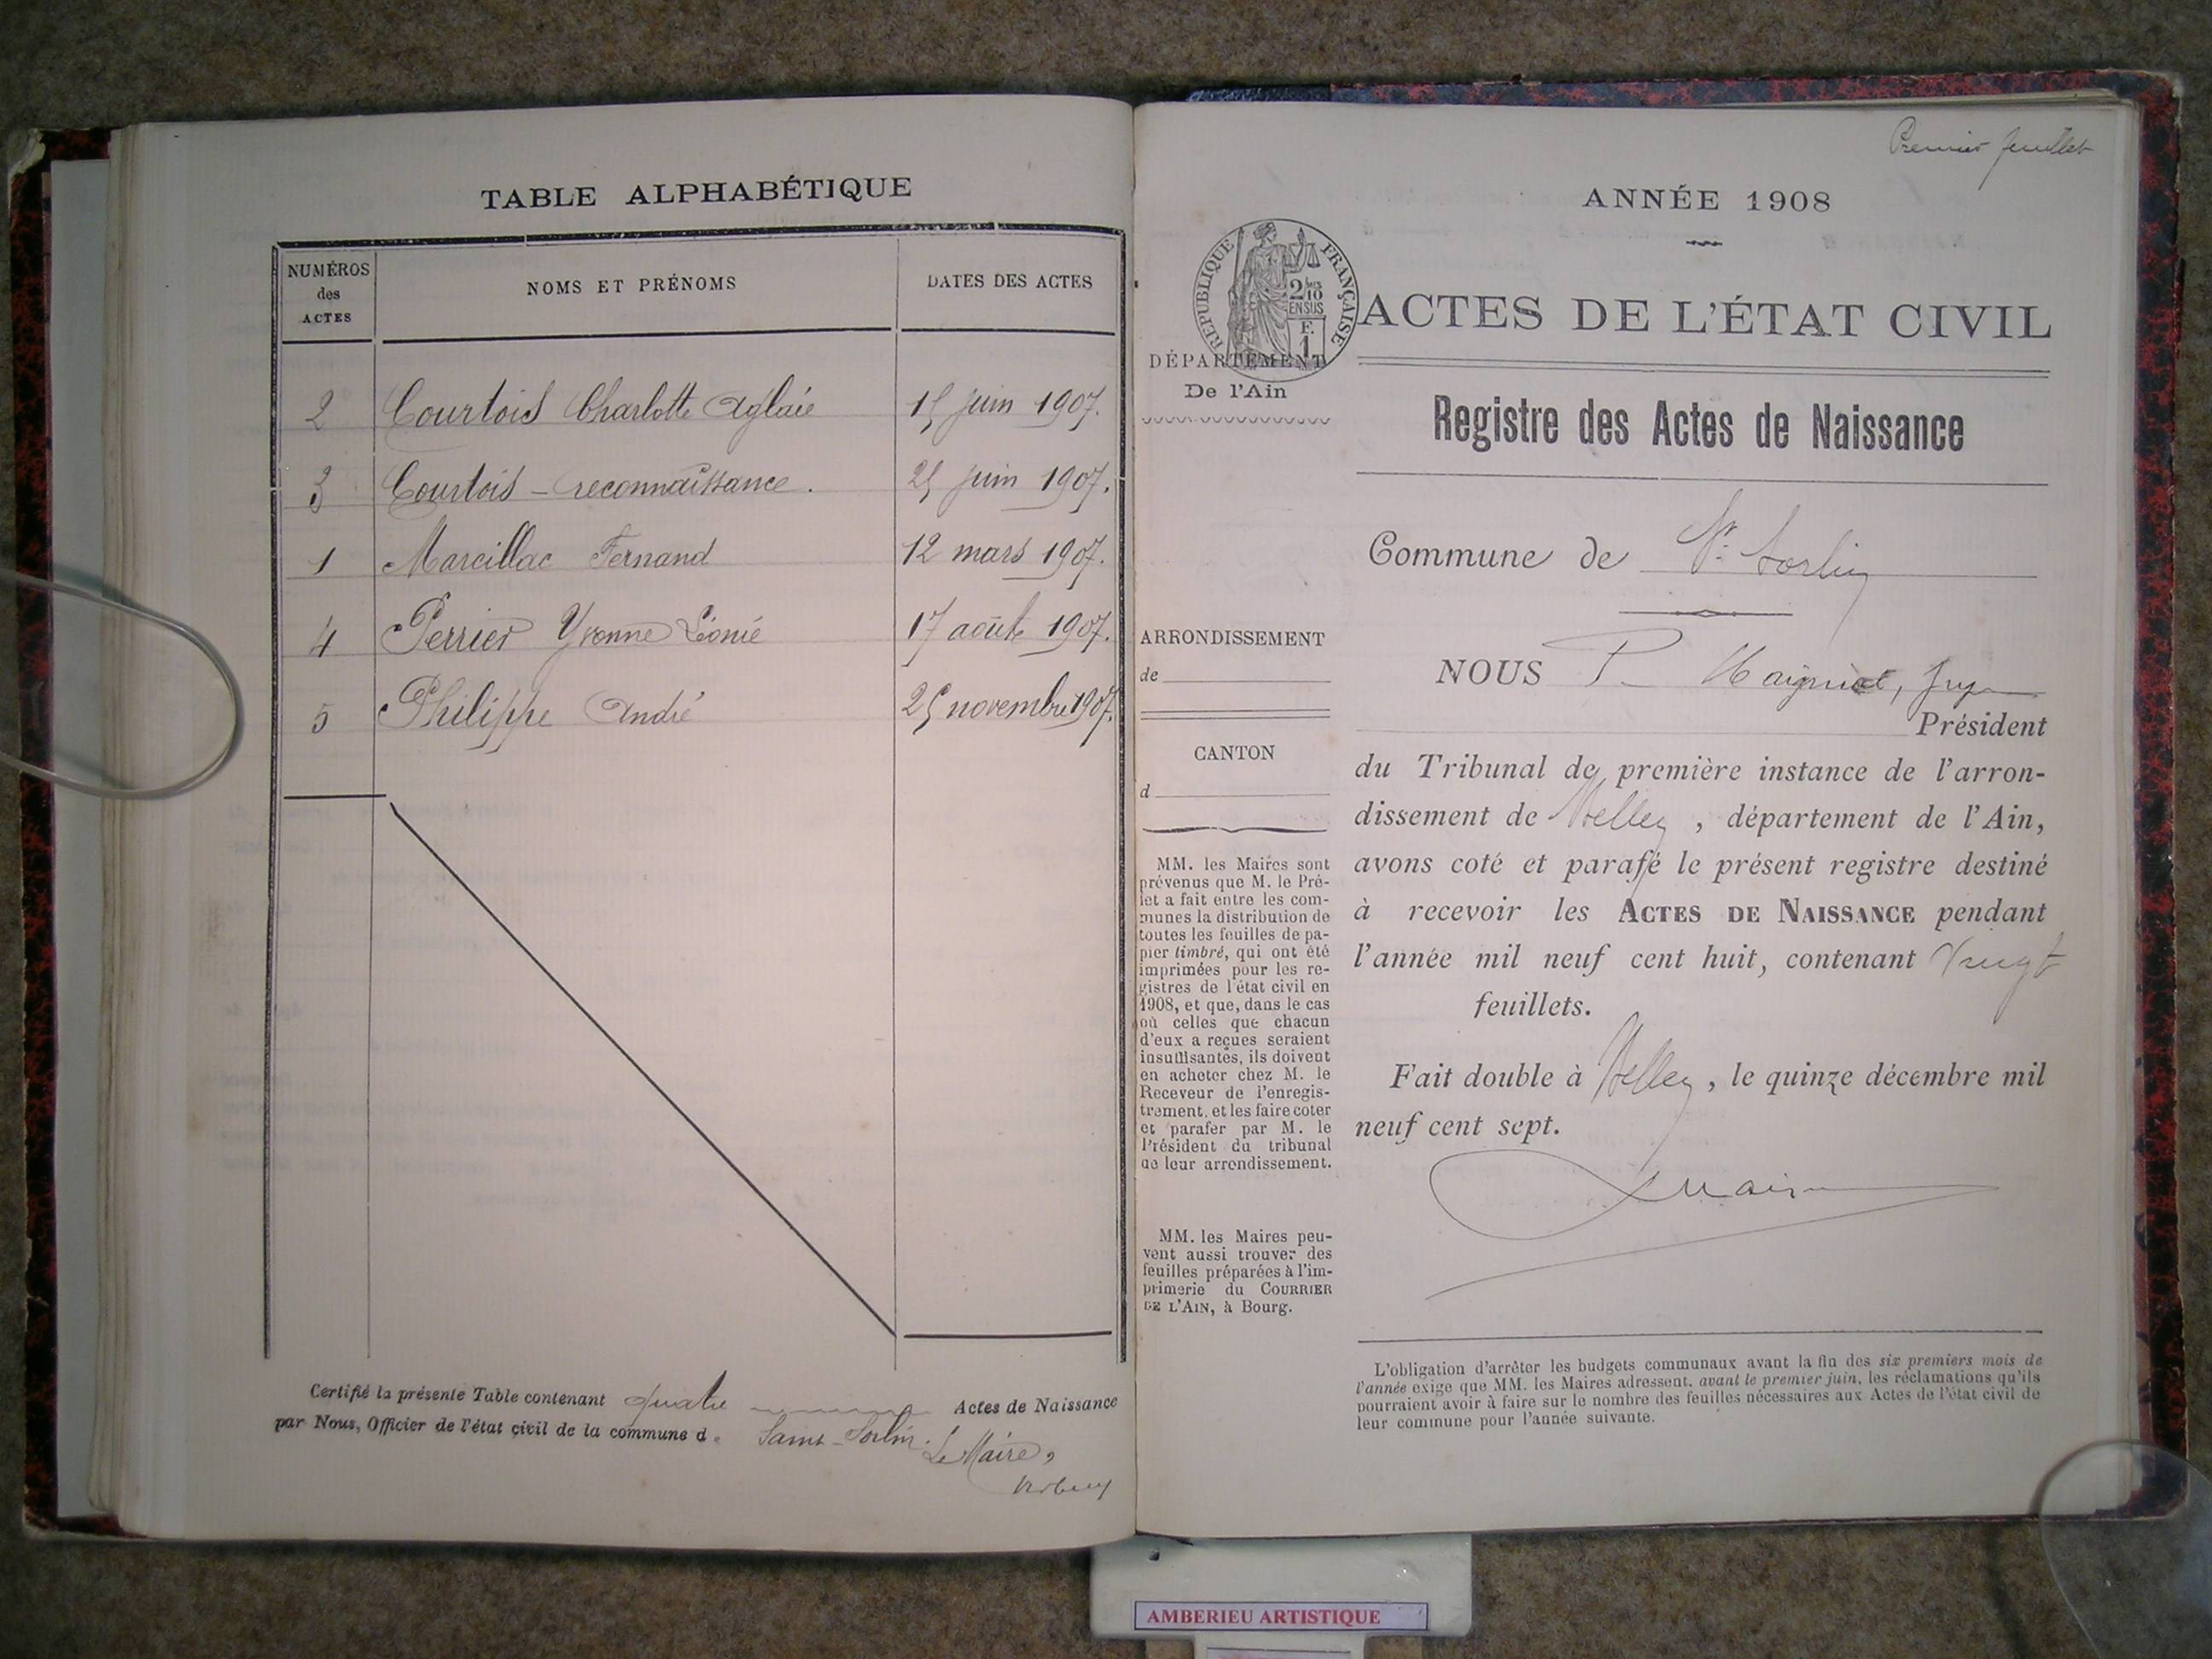 TABLE ALPHABÉTIQUE
NUMÉROS
des
ACTES
NOMS ET PRÉNOMS
DATES DES ACTES
2 Courtois Charlotte Aglaïe 15 juin 1907.
3 Courtois - reconnaissance. 25 juin 1907.
1 Marcillac Fernand 12 mars 1907.
4 Perrier Yvonne Léonie 17 août 1907.
5 Philippe André 25 novembre 1907.
Certifié la présente Table contenant quatre Actes de Naissance
par Nous, Officier de l'état civil de la commune de Saint-Sorlin.
Le Maire,
Premier feuillet
ANNÉE 1908
REPUBLIQUE FRANÇAISE
2/10
EN SUS
F.
1
ACTES DE L'ÉTAT CIVIL
DÉPARTEMENT
De l'Ain
Registre des Actes de Naissance
Commune de St. Sorlin
ARRONDISSEMENT
de
NOUS P.
Président
CANTON
d
du Tribunal de première instance de l'arron-
dissement de Belley, département de l'Ain,
avons coté et parafé le présent registre destiné
à recevoir les ACTES DE NAISSANCE pendant
l'année mil neuf cent huit, contenant vingt
feuillets.
Fait double à Belley, le quinze décembre mil
neuf cent sept.
MM. les Maires sont
prévenus que M. le Pré-
fet a fait entre les com-
munes la distribution de
toutes les feuilles de pa-
pier timbré, qui ont été
imprimées pour les re-
gistres de l'état civil en
1908, et que, dans le cas
où celles que chacun
d'eux a reçues seraient
insuffisantes, ils doivent
en acheter chez M. le
Receveur de l'enregis-
trement, et les faire coter
et parafer par M. le
Président du tribunal
de leur arrondissement.
MM. les Maires peu-
vent aussi trouver des
feuilles préparées à l'im-
primerie du COURRIER
DE L'AIN, à Bourg.
L'obligation d'arrêter les budgets communaux avant la fin des six premiers mois de
l'année exige que MM. les Maires adressent, avant le premier juin, les réclamations qu'ils
pourraient avoir à faire sur le nombre des feuilles nécessaires aux Actes de l'état civil de
leur commune pour l'année suivante.
AMBERIEU ARTISTIQUE